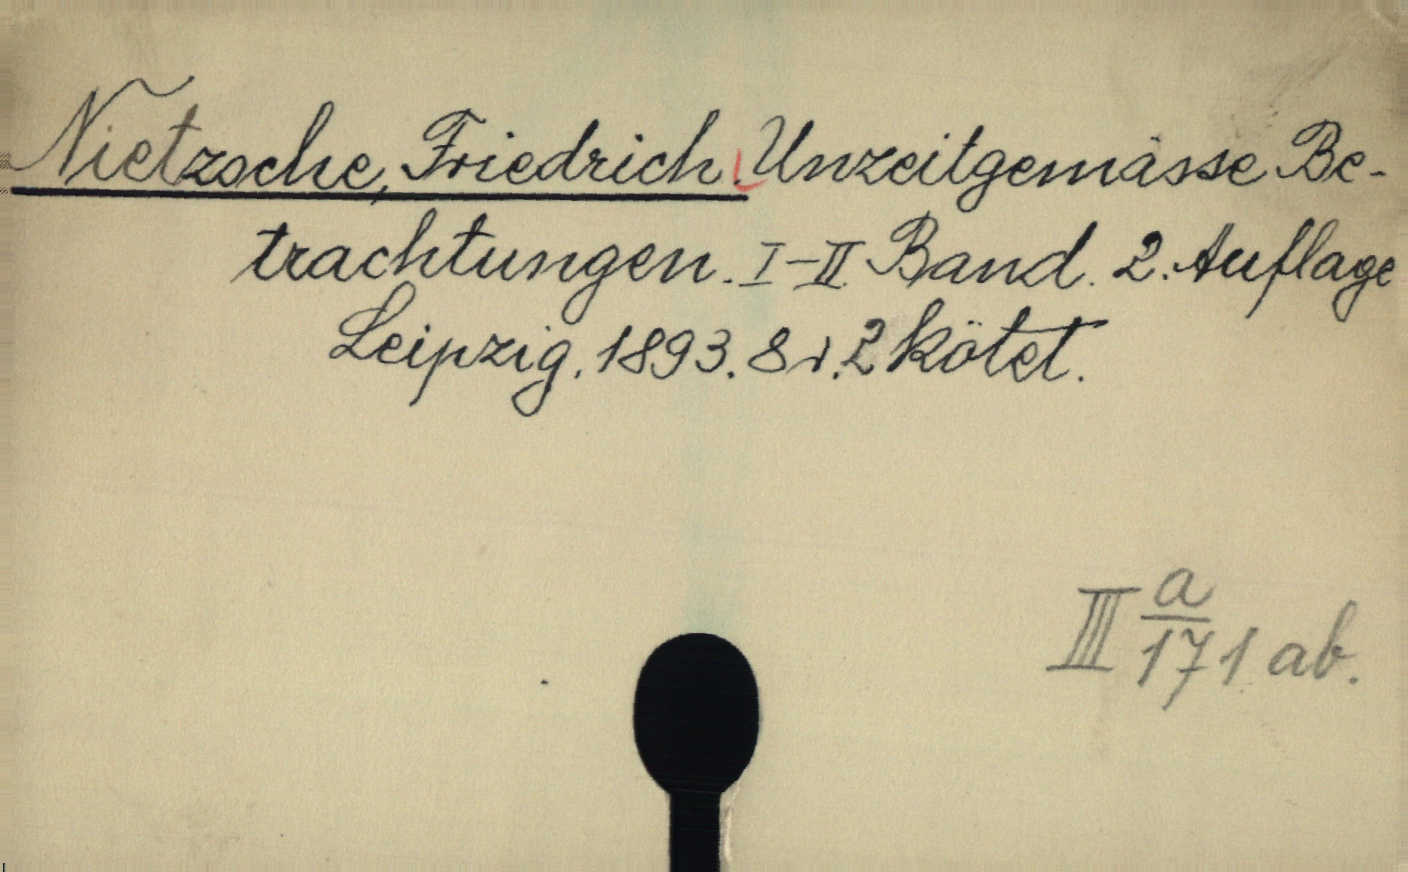 Nietzsche, Friedrich. Unzeitgemässe Be-
trachtungen. I-II. Band. 2. Auflage
Leipzig, 1893. 8r. 2 kötet.
III a/171 ab.